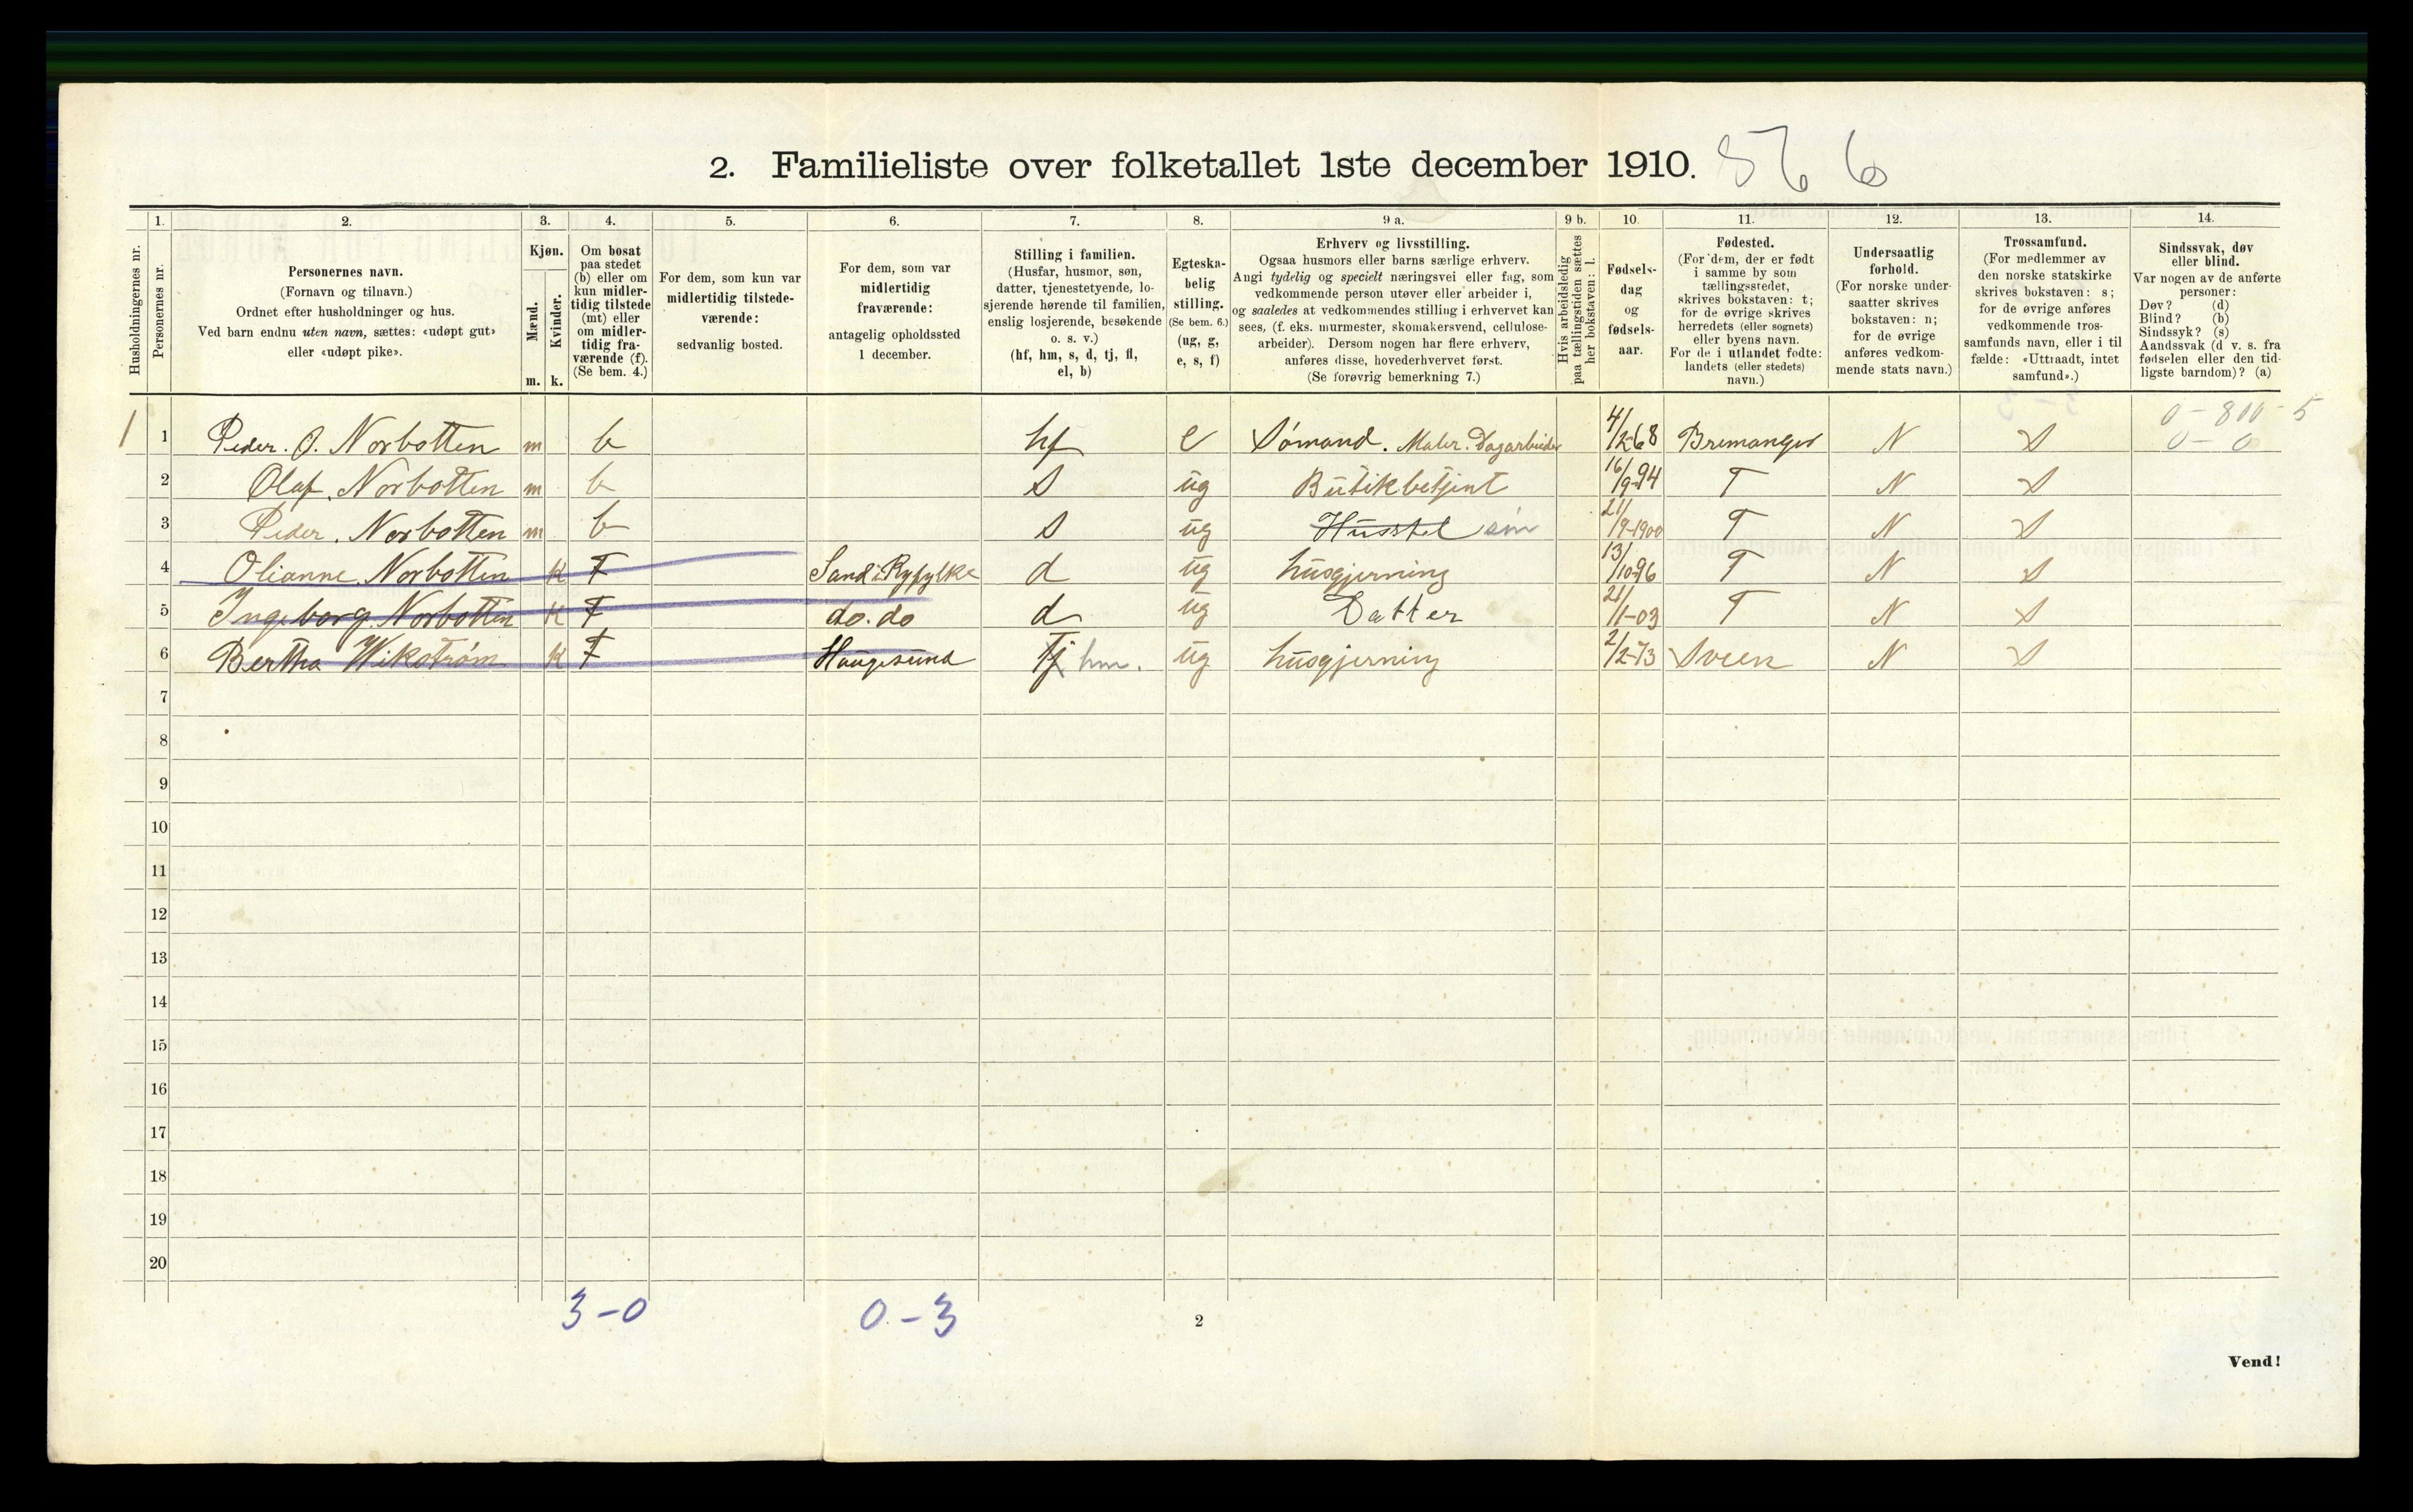 2. Familieliste over folketallet 1ste december 1910. 576 6
1. 2. 3. 4. 5. 6. 7. 8. 9 a. 9 b. 10. 11. 12. 13. 14.
Husholdningernes nr.
Personernes nr.
Personernes navn.
(Fornavn og tilnavn.)
Ordnet efter husholdninger og hus.
Ved barn endnu uten navn, sættes: «udøpt gut»
eller «udøpt pike».
Kjøn.
Mænd.
Kvinder.
m. k.
Om bosat
paa stedet
(b) eller om
kun midler-
tidig tilstede
(mt) eller
om midler-
tidig fra-
værende (f).
(Se bem. 4.)
For dem, som kun var
midlertidig tilstede-
værende:
sedvanlig bosted.
For dem, som var
midlertidig
fraværende:
antagelig opholdssted
1 december.
Stilling i familien.
(Husfar, husmor, søn,
datter, tjenestetyende, lo-
sjerende hørende til familien,
enslig losjerende, besøkende
o. s. v.)
(hf, hm, s, d, tj, fl,
el, b)
Egteska-
belig
stilling.
(Se bem. 6.)
(ug, g,
e, s, f)
Erhverv og livsstilling.
Ogsaa husmors eller barns særlige erhverv.
Angi tydelig og specielt næringsvei eller fag, som
vedkommende person utøver eller arbeider i,
og saaledes at vedkommendes stilling i erhvervet kan
sees, (f. eks. murmester, skomakersvend, cellulose-
arbeider). Dersom nogen har flere erhverv,
anføres disse, hovederhvervet først.
(Se forøvrig bemerkning 7.)
Hvis arbeidsledig
paa tællingstiden sættes
her bokstaven: l.
Fødsels-
dag
og
fødsels-
aar.
Fødested.
(For dem, der er født
i samme by som
tællingsstedet,
skrives bokstaven: t;
for de øvrige skrives
herredets (eller sognets)
eller byens navn.
For de i utlandet fødte:
landets (eller stedets)
navn.)
Undersaatlig
forhold.
(For norske under-
saatter skrives
bokstaven: n;
for de øvrige
anføres vedkom-
mende stats navn.)
Trossamfund.
(For medlemmer av
den norske statskirke
skrives bokstaven: s;
for de øvrige anføres
vedkommende tros-
samfunds navn, eller i til
fælde: «Uttraadt, intet
samfund».)
Sindssvak, døv
eller blind.
Var nogen av de anførte
personer:
Døv? (d)
Blind? (b)
Sindssyk? (s)
Aandssvak (d v. s. fra
fødselen eller den tid-
ligste barndom)? (a)
0 - 800 - 5
1 1 Peder. O. Norbotten m b hf e Sømand. Maler. Dagarbeider 4/12-68 Bremanger N S 0 - 0
2 Olaf. Norbotten m b S ug Butikbetjent 16/9-94 T N S
3 Peder. Norbotten m b S ug Husstel søn 21/9-1900 T N S
4 Olianne. Norbotten K F Sand i Ryfylke d ug husgjerning 13/10-96 T N S
5 Ingeborg. Norbotten K F do. do d ug Datter 21/1-03 T N S
6 Bertha Wikstrøm K F Haugesund Tj hm. ug husgjerning 2/2-73 Sveen N S
7
8
9
10
11
12
13
14
15
16
17
18
19
20
3-0 0-3
2
Vend!